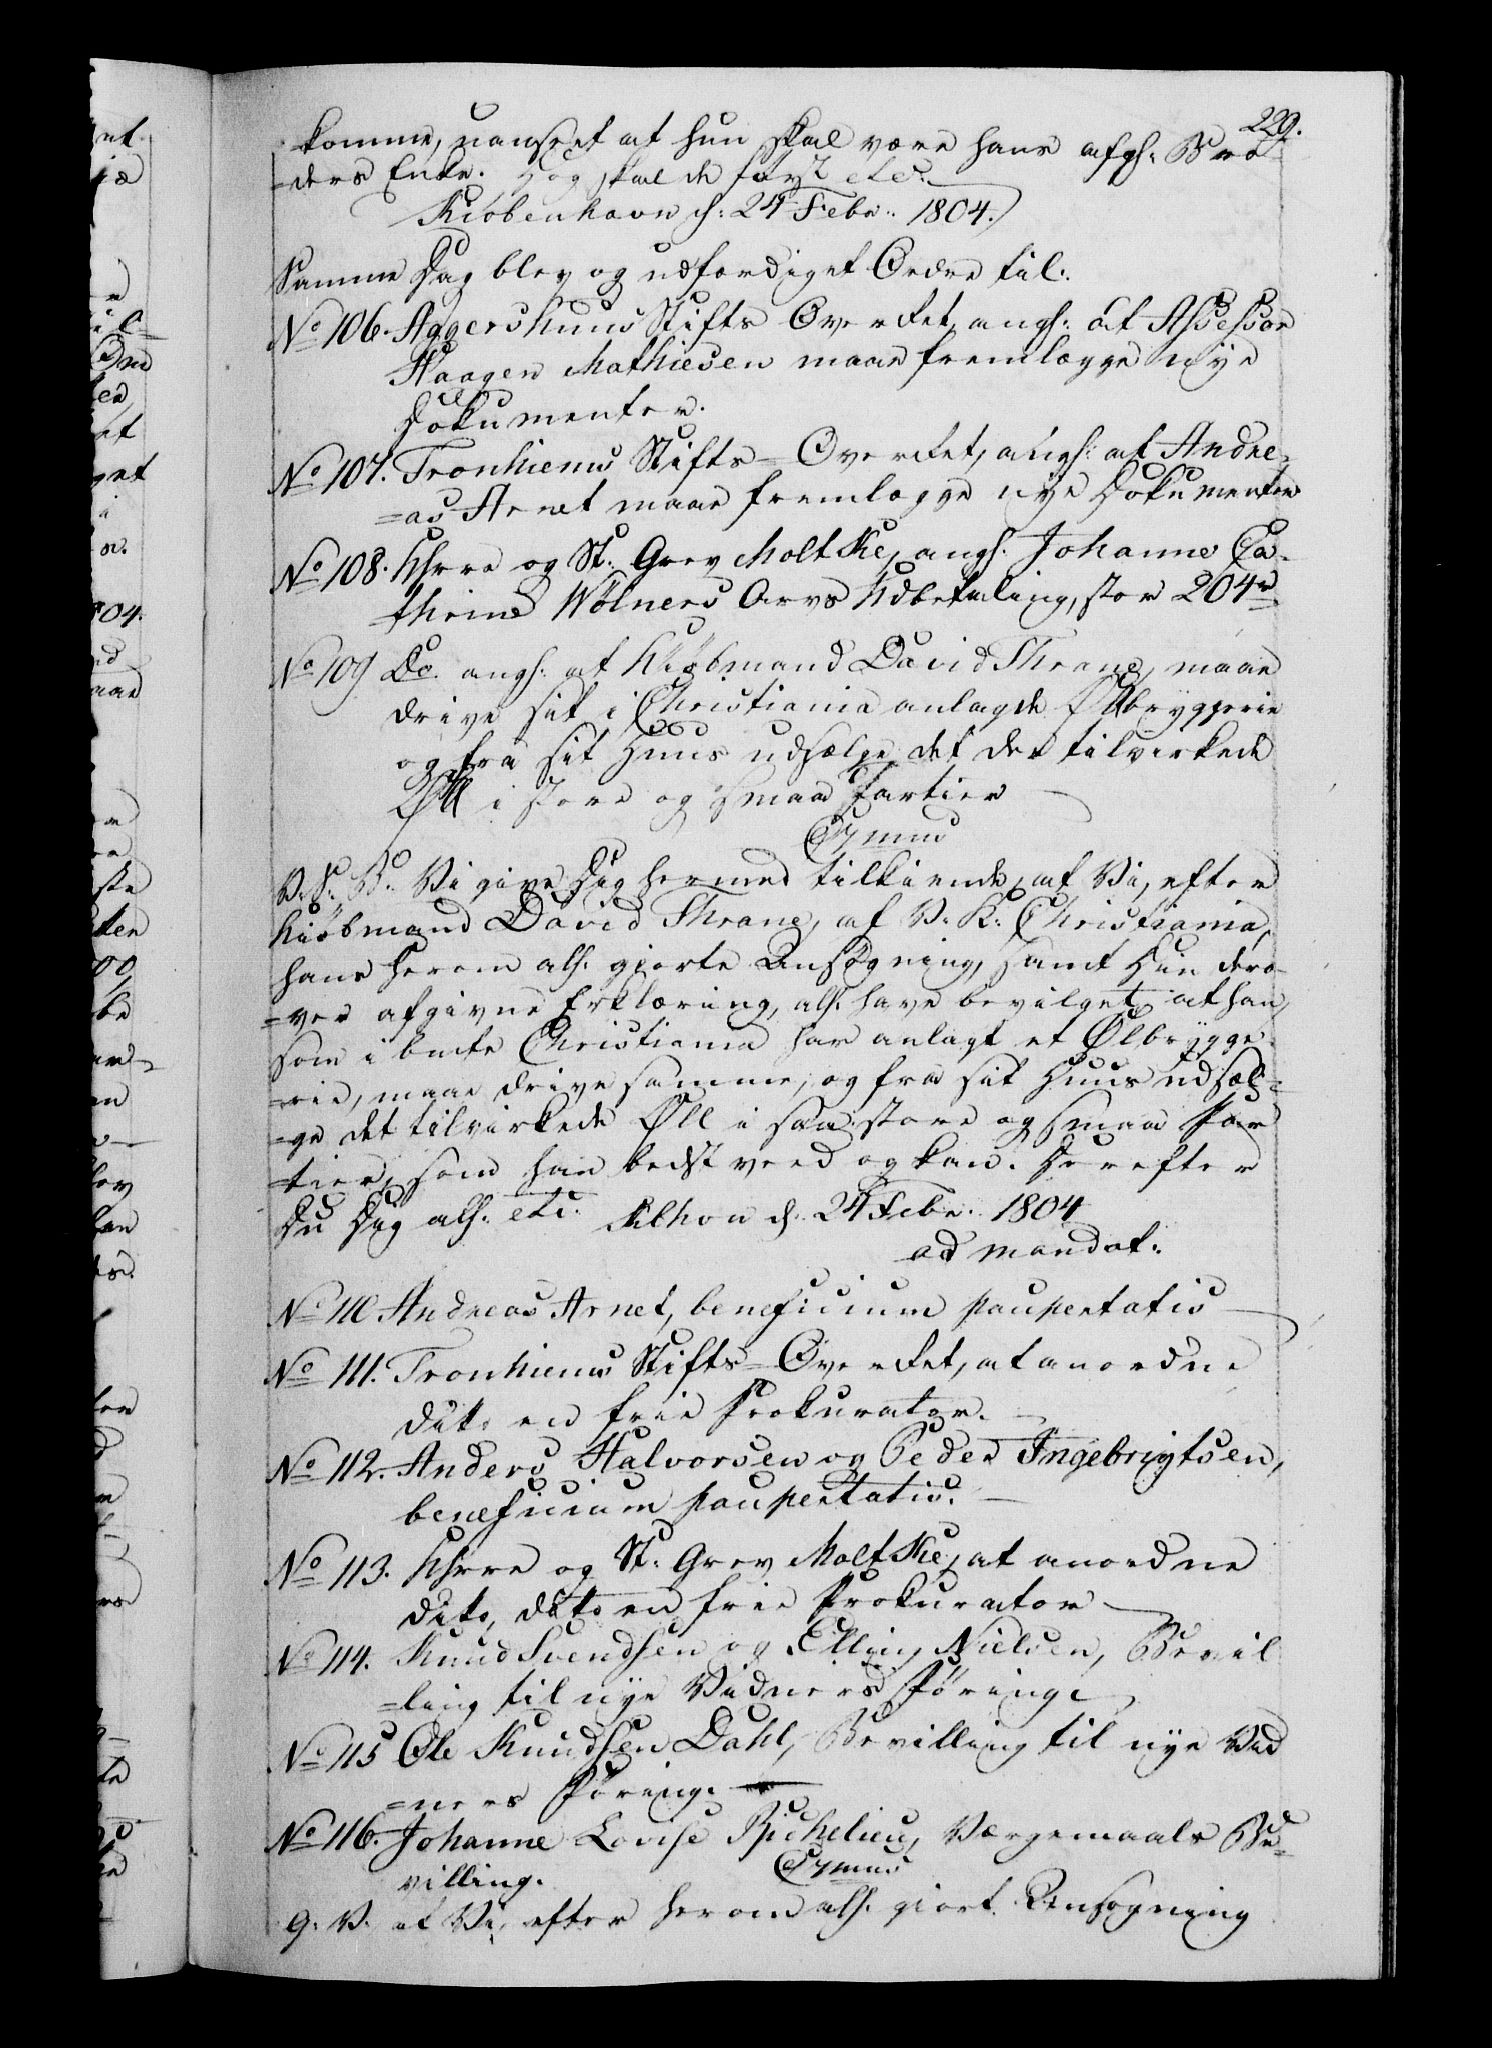 229.
komme, uanseet at hun skal være hans afgl: Bro
=ders Enke. Dog skal de først etc:
Kiøbenhavn d: 24 Febr: 1804.
Samme Dag blev og udfærdiget Ordre til:
No 106. Aggershuus Stifts Overret, angl: at Assessor
Haagen Mathiesen maae fremlægge nye
Dokumenter.
No 107. Tronhiems Stifts-Overret, angl: at Andre-
=as Arnet maae fremlægge nye Dokumenter
No 108. Khrre og St: Grev Moltke, angl. Johanne Ca-
=thrine Wølners Arvs Udbetaling, stor 204 r
No 109 Do. angl: at Kiøbmand David Thrane, maae
drive sit i Christiania anlagde Ølbryggerie
og fra sit Huus udsælge det der tilvirkede
Øll i store og smaa Partier
C7 mus
V. S. B. Vi give Dig hermed tilkiende, at Vi, efter
Kiøbmand David Thrane, af V. K: Christiania,
hans herom all. giorte Ansøgning, samt Din dero-
=ver afgivne Erklæring, all. have bevilget, at han,
som i bmte Christiania har anlagt et Ølbrygge-
=rie, maae drive samme, og fra sit Huus udsæl-
=ge det tilvirkede Øll i saa store og smaa Par
=tier, som han bedst veed og kan. Derefter
Du Dig all. etc. Kbhvn d. 24 Febr. 1804
ad mandat:
No 110 Andreas Arnet, beneficium paupertatis
No 111. Tronhiems Stifts-Overret, at anordne
dito en frie Prokurator.
No 112. Anders Halvorsen og Peder Ingebrigtsen,
beneficium paupertatis.
No 113. Khrre og St: Grev Moltke, at anordne
dito, dito en frie Prokurator
No 114. Knud Svendsen og Elling Nielsen, Bevil
=ling til nye Vidners Føring
No 115 Ole Knudsen Dahl, Bevilling til nye Vid
=ners Føring.
No 116. Johanne Lovise Richelieu, Værgemaals Be-
villing.
C7 mus
G. V. at Vi, efter herom all. giort Ansøgning